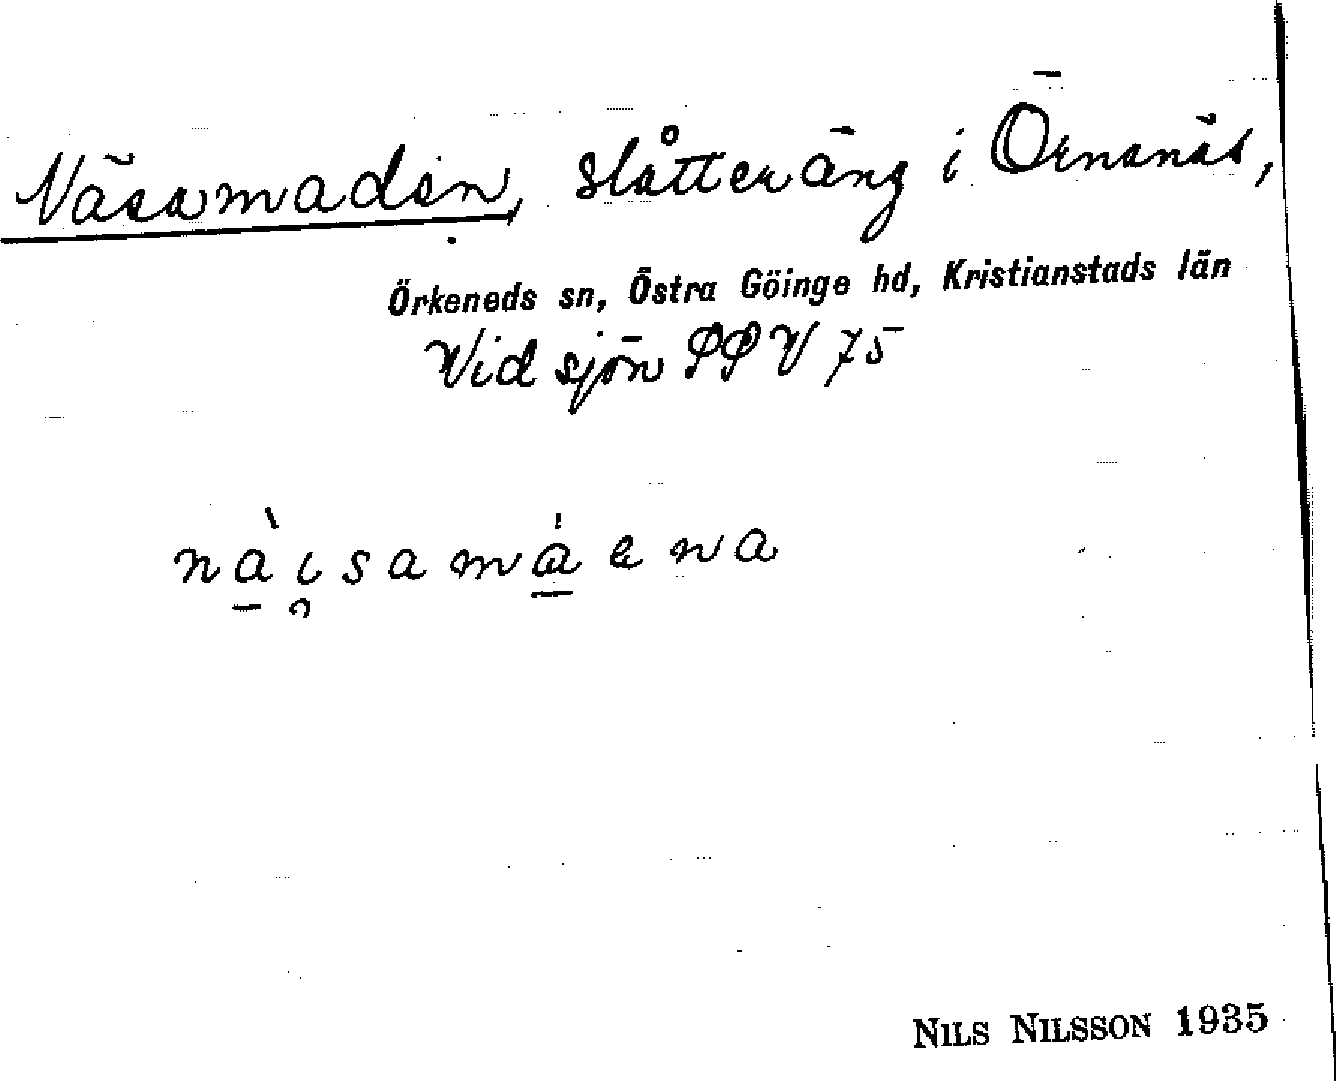 Näsamaden, slåtteräng i Örnanäs,
Örkeneds sn, Östra Göinge hd, Kristianstads län
Vid sjön PP V 75
nàısamáena
NILS NILSSON 1935